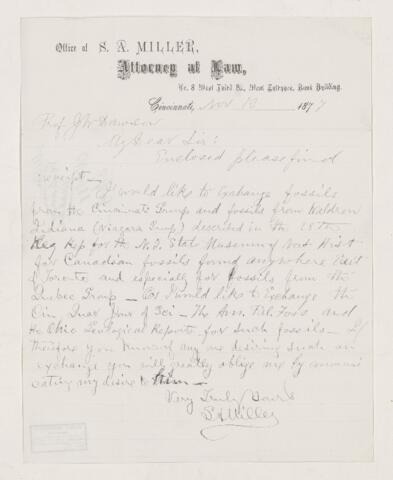 Office of S. A. MILLER,
Attorney at Law,
No. 8 West Third St., West Entrance, Bank Building.
Cincinnati, Nov 13 1877
Prof J W Dawson
My Dear Sir:
Enclosed please find
receipt—
I would like to exchange fossils
from the Cincinnati Group and fossils from Waldron
Indiana (Niagara Group) described in the 28th
Reg Rep for the N.Y. State Museum of Nat Hist
for Canadian fossils found anywhere East
of Toronto and especially for fossils from the
Quebec Group — Or I would like to Exchange the
Cin. Quar Jour of Sci — The Am. Pal. Foss and
the Ohio Geological Reports for such fossils — If
therefore you know of any one desiring such an
exchange you will greatly oblige me by communi
cating my desire to him —
Very Truly Yours
S A Miller